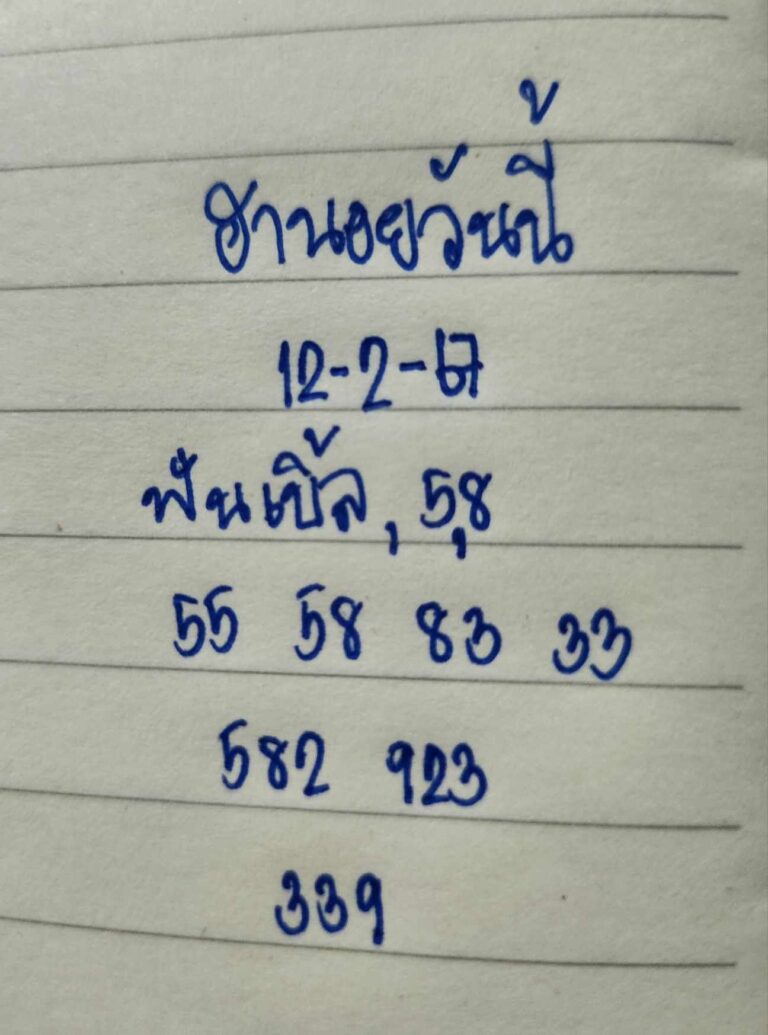 ฮานอยวันนี้
12-2-67
ฟันเบิ้ล, 5,8
55 58 83 33
582 923
339